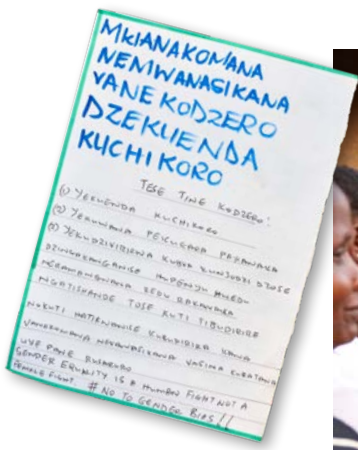 MWANAKOMANA
NEMWANASIKANA
VANEKODZERO
DZEKUENDA
KUCHIKORO
TESE TINE KODZERO:
(1) YEKUENDA KUCHIKORO
(2) YEKUWANA PEKUGARA PAKANAKA
(3) YEKUDZIVIRIRWA KUBVA KUNJODZI DZOSE
DZINGAKANGANISE HUPENYU HWEDU
NERAMANGWANA REDU RAKANAKA
NGATISHANDE TOSE KUTI TIBUDIRIRE
NOKUTI HATIKWANISE KUBUDIRIRA KANA
VANAKOMANA NEVANASIKANA VASINA KUBATANA
UYE PANE RUSARURO
GENDER EQUALITY IS A HUMAN FIGHT NOT A
FEMALE FIGHT. # NO TO GENDER BIAS!!